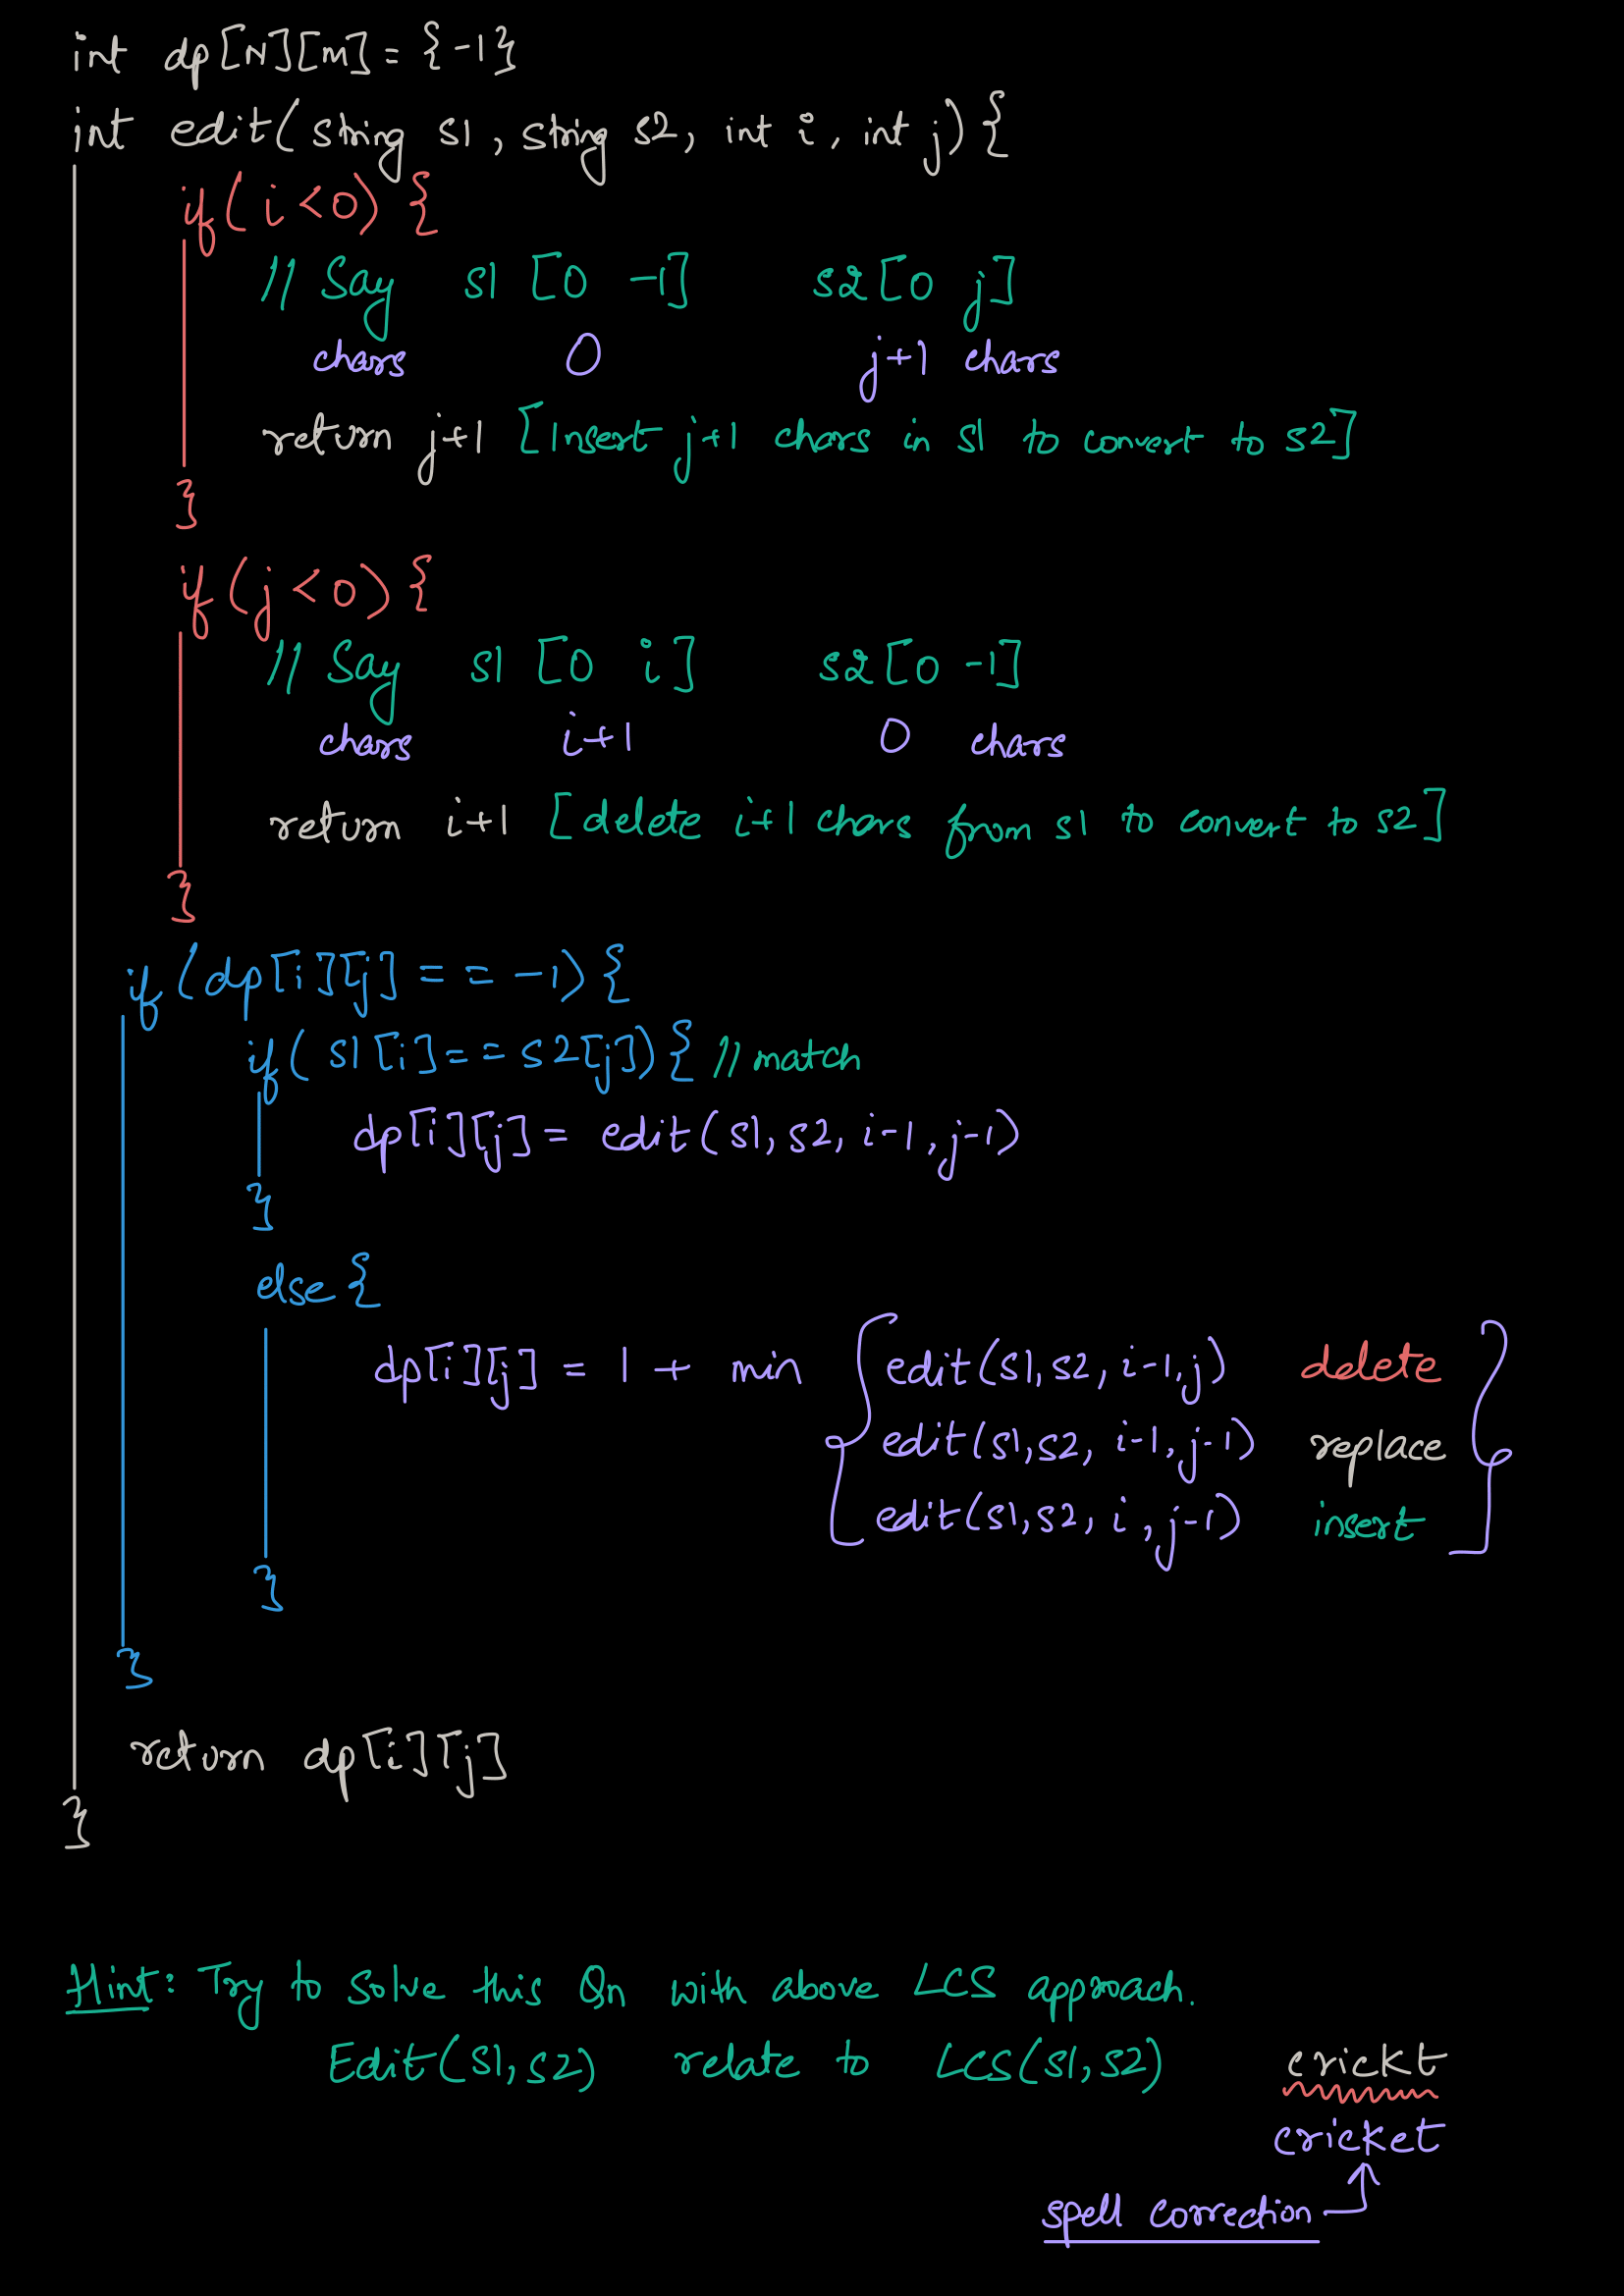 int dp[N][M] = {-1}
int edit(string s1, string s2, int i, int j){
if(i<0){
// Say s1 [0 -1] s2[0 j]
chars 0 j+1 chars
return j+1 [Insert j+1 chars in s1 to convert to s2]
}
if(j<0){
// Say s1 [0 i] s2[0 -1]
chars i+1 0 chars
return i+1 [delete i+1 chars from s1 to convert to s2]
}
if(dp[i][j] == -1){
if( s1[i]==s2[j]){ // match
dp[i][j] = edit(s1, s2, i-1, j-1)
}
else{
dp[i][j] = 1 + min { edit(s1, s2, i-1, j) delete
edit(s1, s2, i-1, j-1) replace
edit(s1, s2, i, j-1) insert }
}
}
return dp[i][j]
}
Hint: Try to solve this Qn with above LCS approach.
Edit(s1, s2) relate to LCS(s1, s2)
crickt
cricket
spell correction